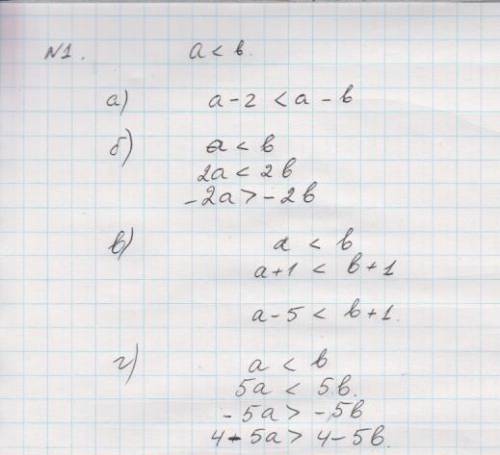 №1. a < b.
а) a - 2 < a - b
б) a < b
2a < 2b
-2a > -2b
в) a < b
a+1 < b+1
a-5 < b+1.
г) a < b
5a < 5b.
-5a > -5b
4-5a > 4-5b.